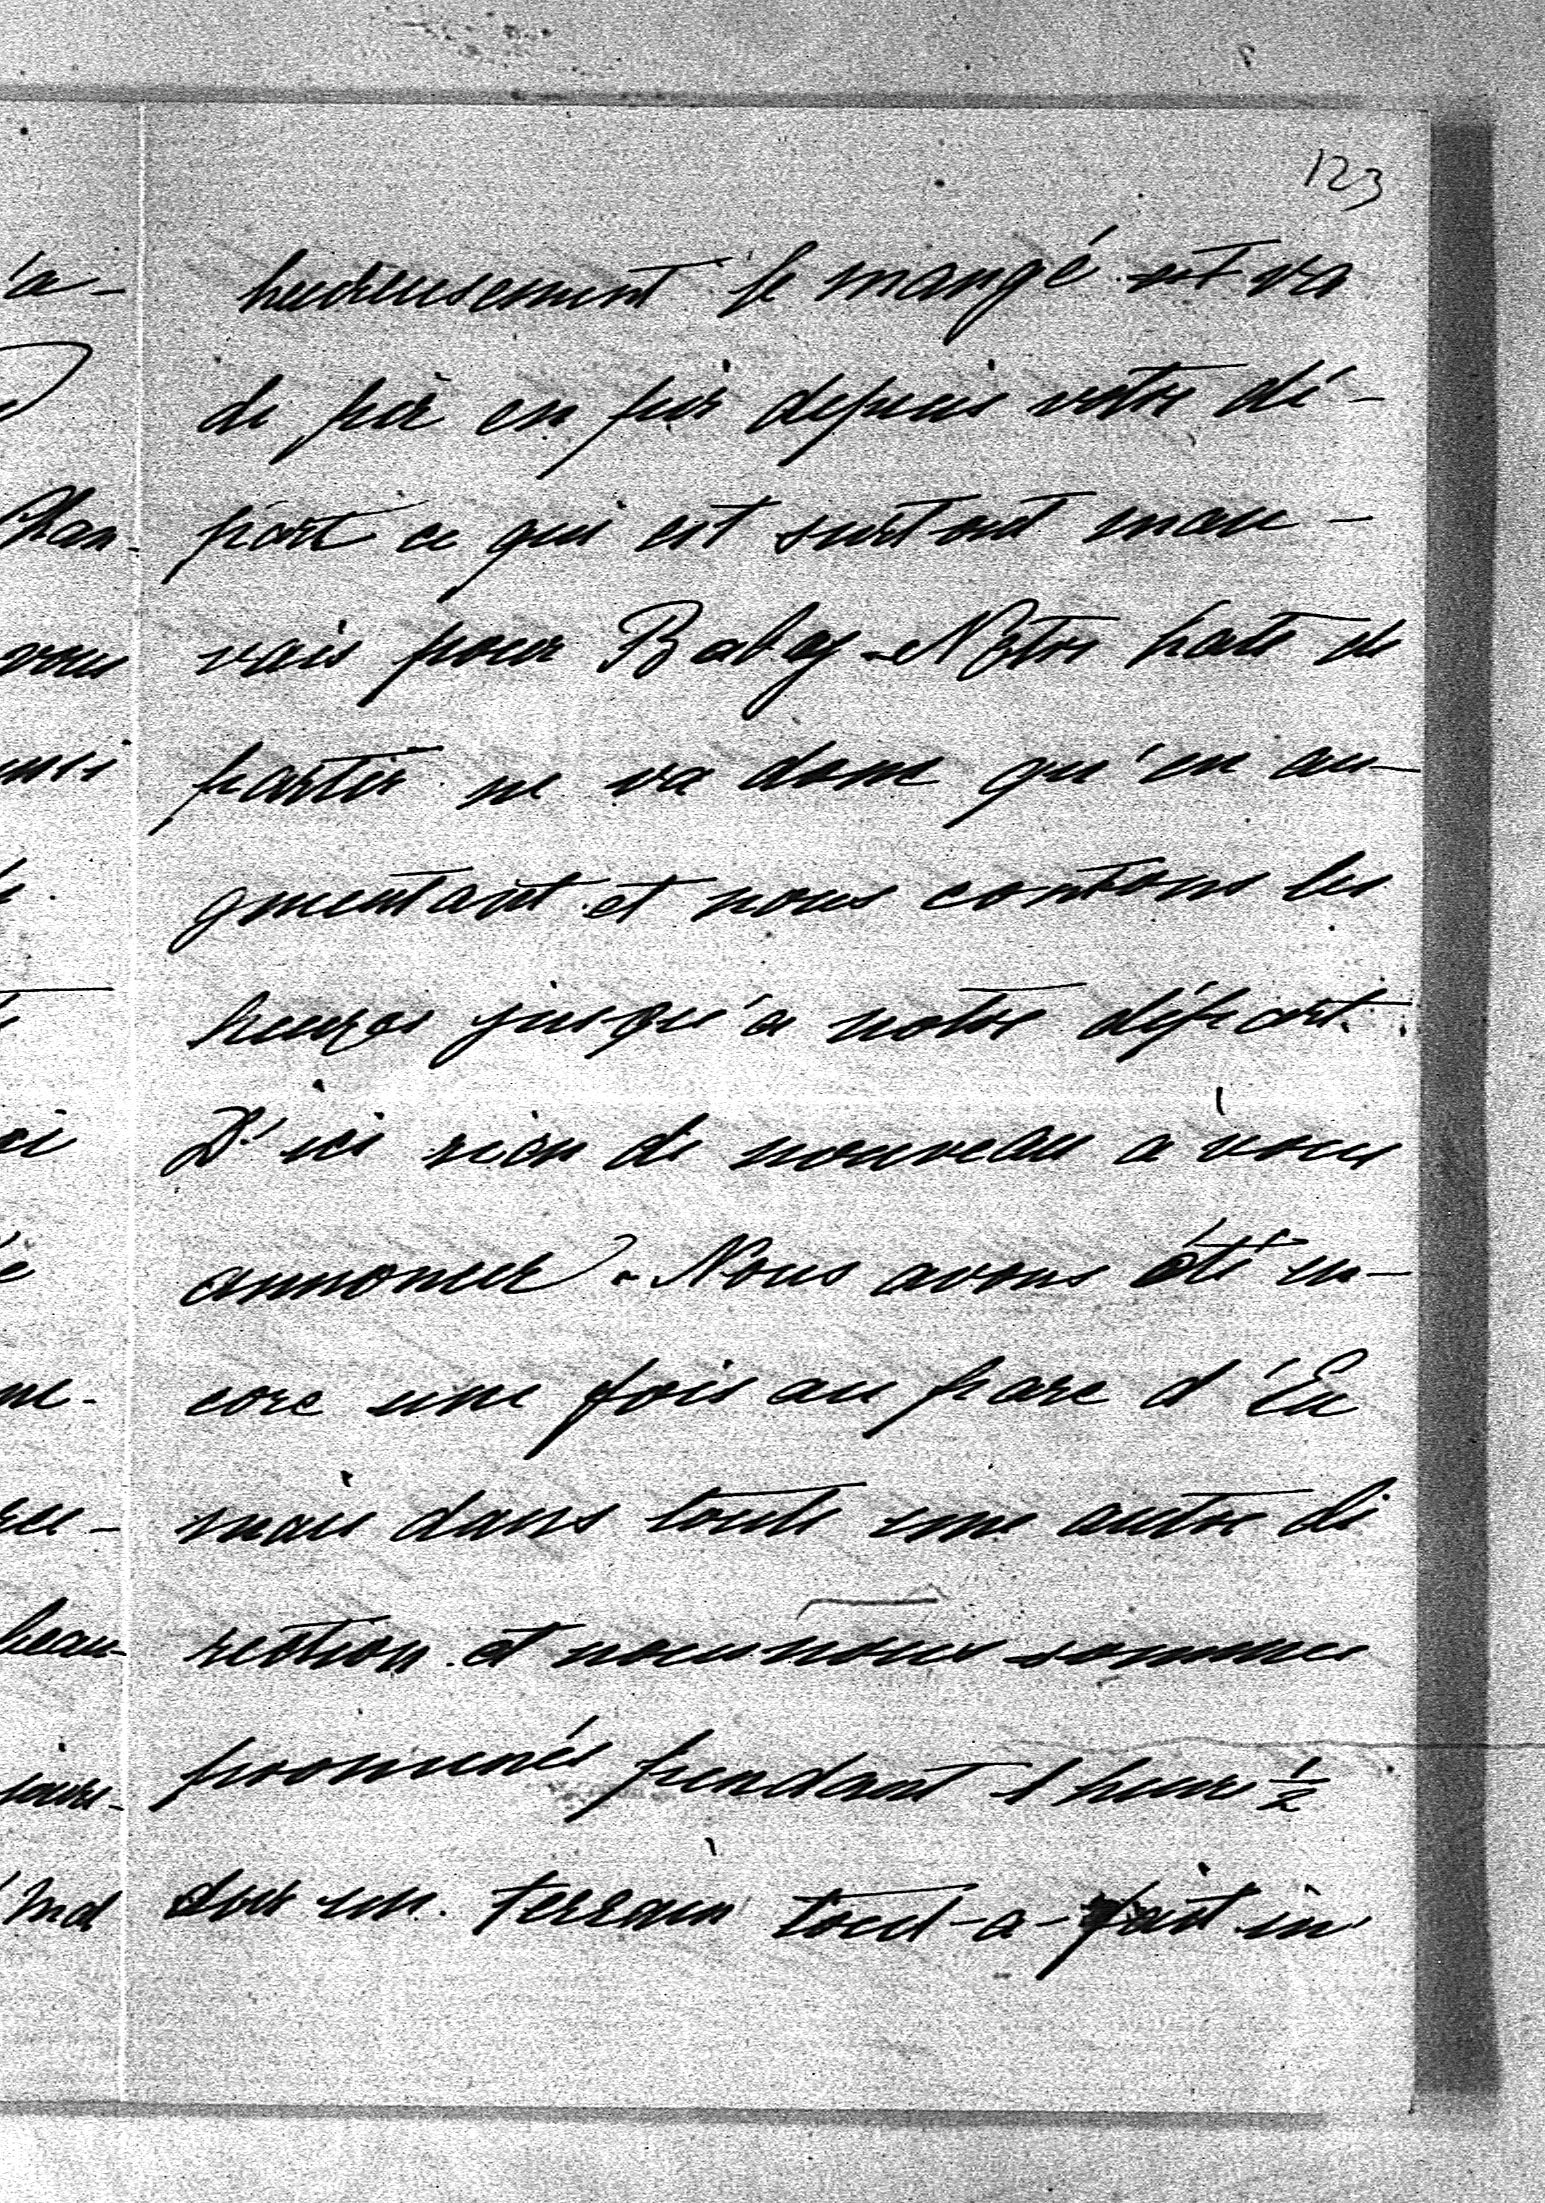 123
heureusement le mangé et va
de pir en pir depuis votre dé-
part ce qui est surtout mau-
vais pour Baby. Nôtre hate de
partir ne va donc qu'en au-
gmentant et nous contons les
heures jusqu'a notre départ.
D'ici rien de nouveau a vous
annoncer. Nous avons été en-
core une fois au parc d'Eu
mais dans toute une autre di
rection et nous nous sommes
promenés pendant 1 heure ½
sur un terrain tout-a-fait in